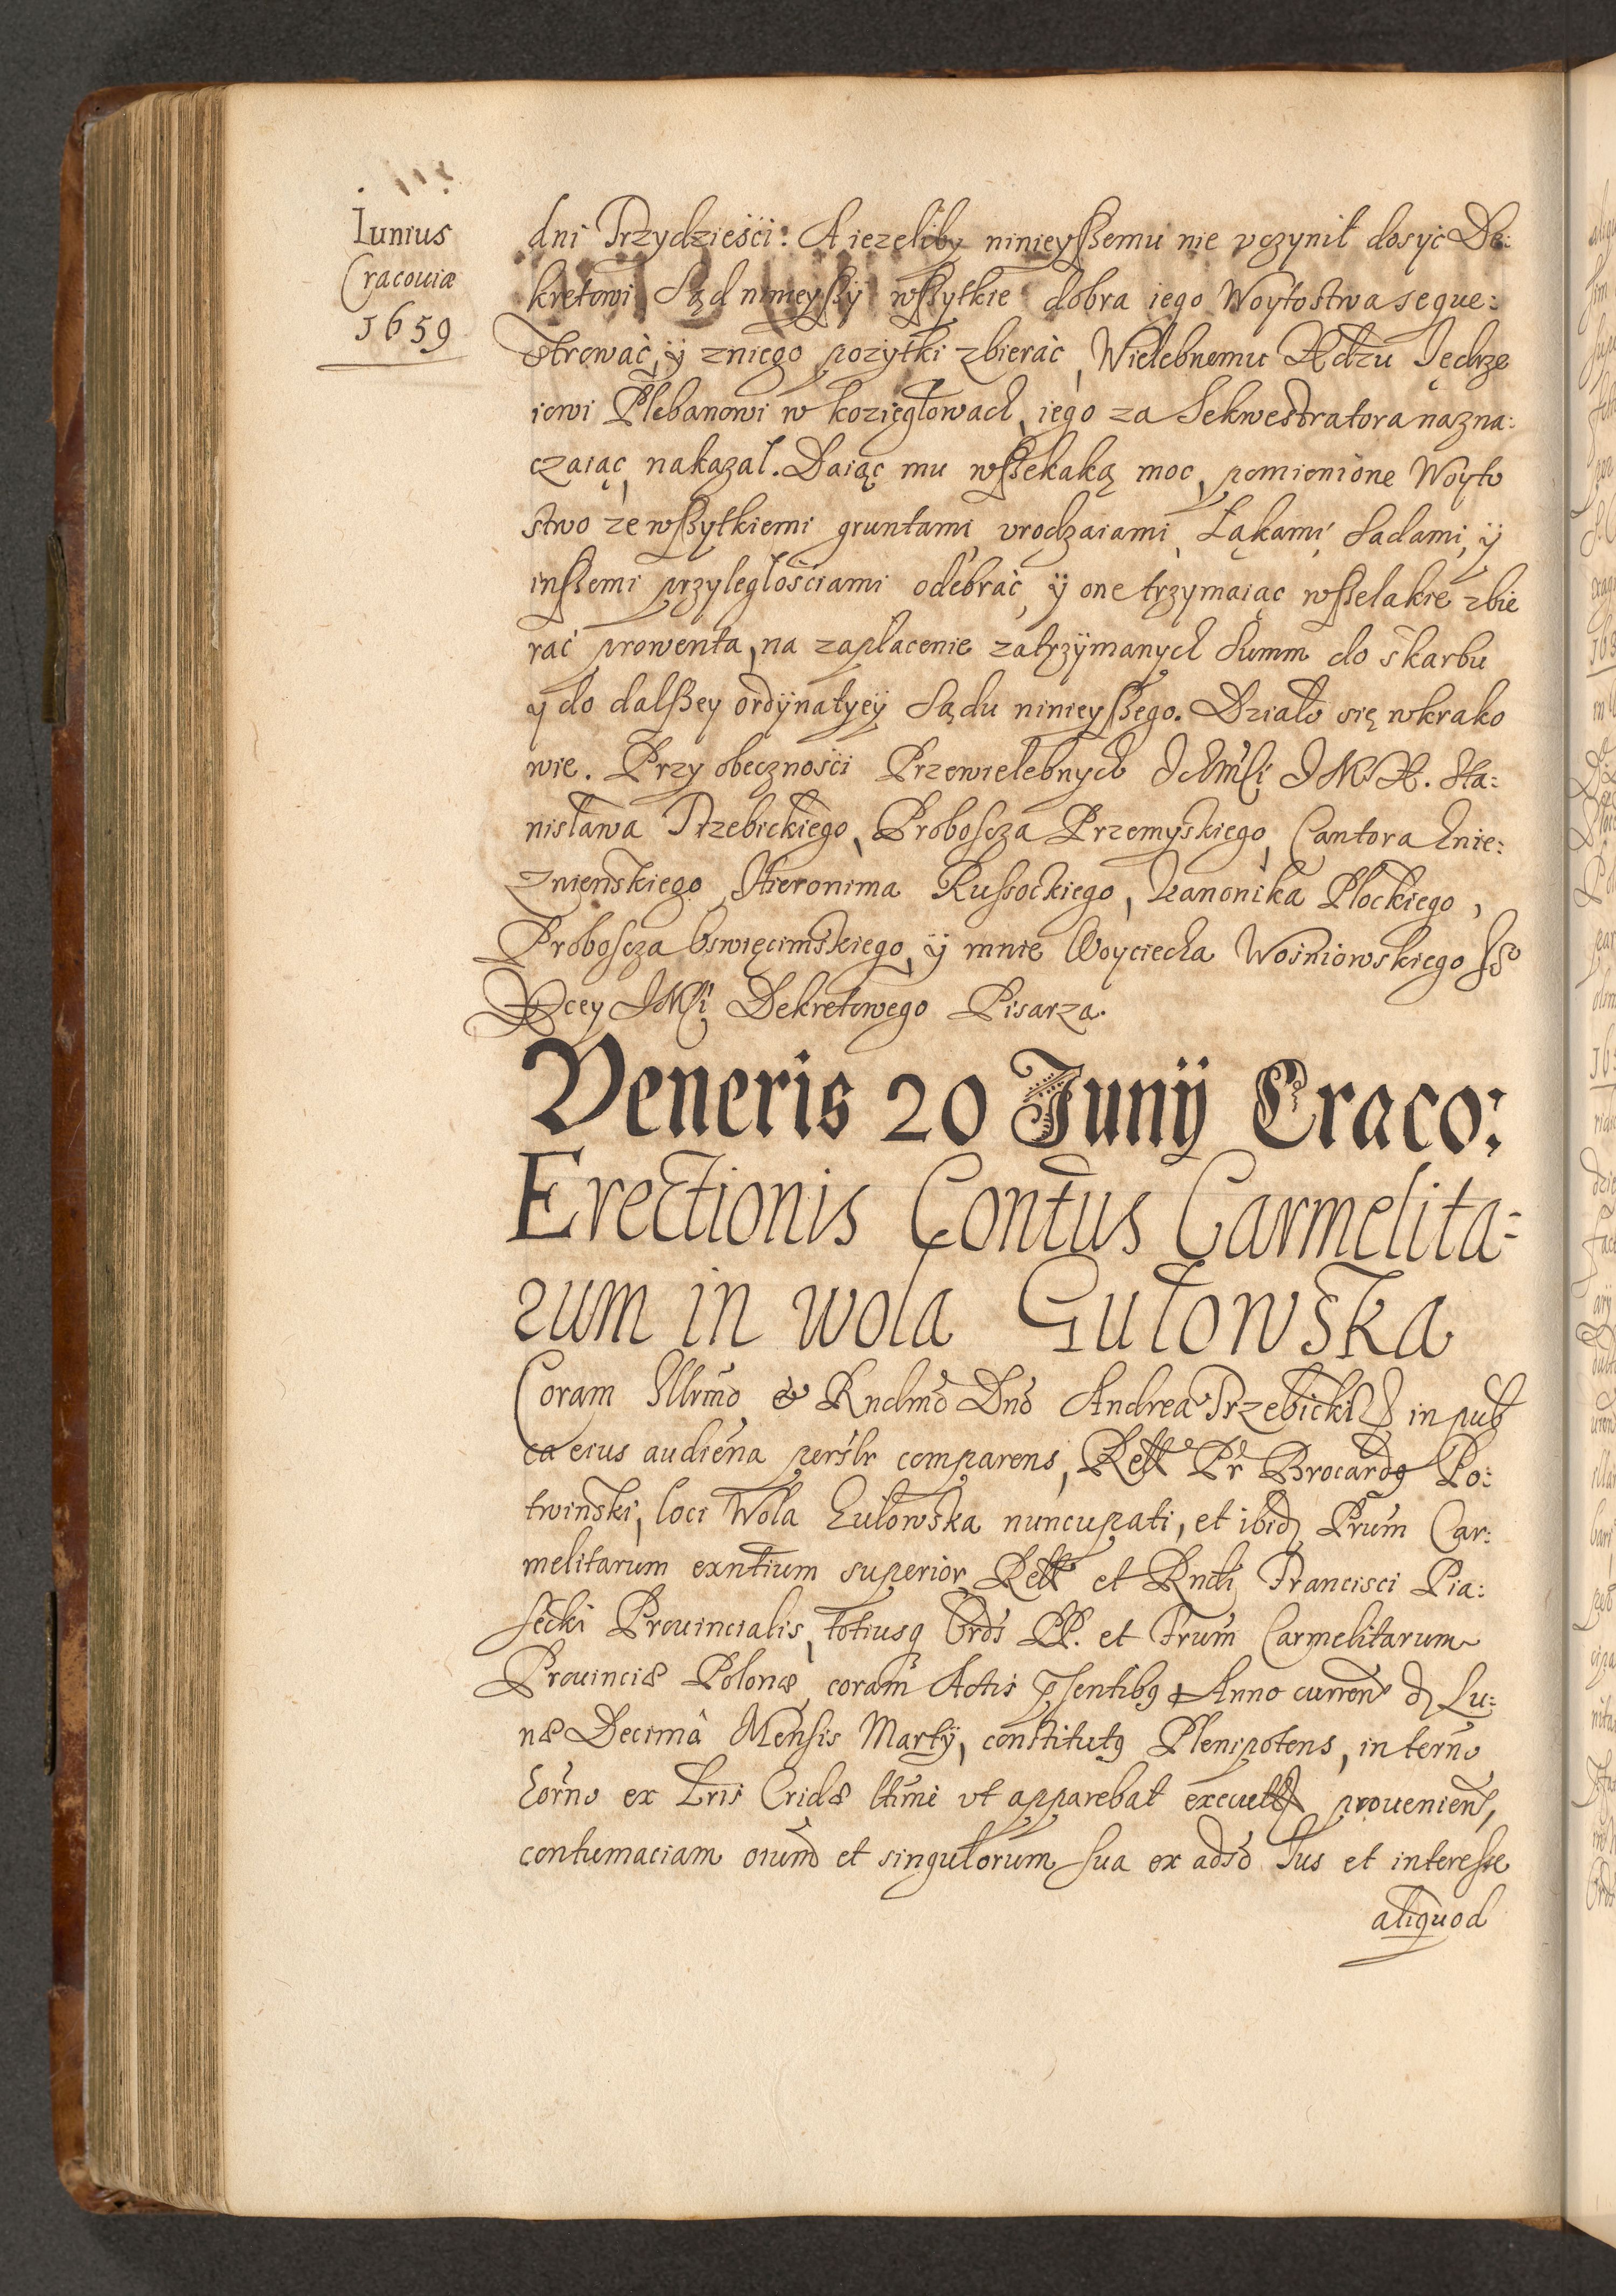 Iunius
Cracouiæ
1659
dni Trzydzieści: A iezeliby ninieyszemu nie vczynił dosyć De:
kretowi Sąd ninieyszy wszytkie dobra iego Woytostwa seque:
strować, ÿ zniego pozytki zbierać, Wielebnemu Xdzu Jędrze
iowi Plebanowi w koziegłowach, iego za Sekwestratora nazna:
czaiąc, nakazał. Daiąc mu wszekaką moc, pomienione Woyto
stwo ze wszytkiemi gruntami, vrodzaiami, Łąkami, Sadami, ÿ
inszemi przyległościami odebrać, ÿ one trzymaiąc wszelakie zbie
rać prowenta, na zapłacenie zatrzÿmanych Summ do skarbu
y do dalszey ordÿnatyeÿ Sądu ninieyszego. Działo się wkrako
wie. Przy obecznosci Przewielebnych IchMści IMX. Sta:
nisława Trzebickiego, Proboscza Przemyskiego, Cantora Gnie:
znienskiego, Hieronima Russockiego, Kanonika Płockiego,
Proboscza Oswięcimskiego, ÿ mnie Woyciecha Wośniowskiego
IMści Dekretowego Pisarza.
Veneris 20 Junÿ Craco:
Erectionis Contus Carmelita=
rum in wola Gułowska
Coram Illrmo & Rndmo Dno Andrea Trzebicki in pub
ca eius audiena perslr comparens, Rell Pr Brocardus Po:
twinski, loci Wola Gułowska nuncupati, et ibid Prum Car:
melitarum exntium superior, Rell et Rndi Francisci Pia:
secki Prouincialis, totiusq Ords PP. et Frum Carmelitarum
Prouinciæ Polonæ, coram Actis psentibq Anno curren d Lu:
næ Decimâ Mensis Martÿ, constitutq Plenipotens, in termo
horno ex Lris Cridæ ltime vt apparebat execut prouenien,
contumaciam oium et singulorum sua ex adso Jus et interesse
aliquod